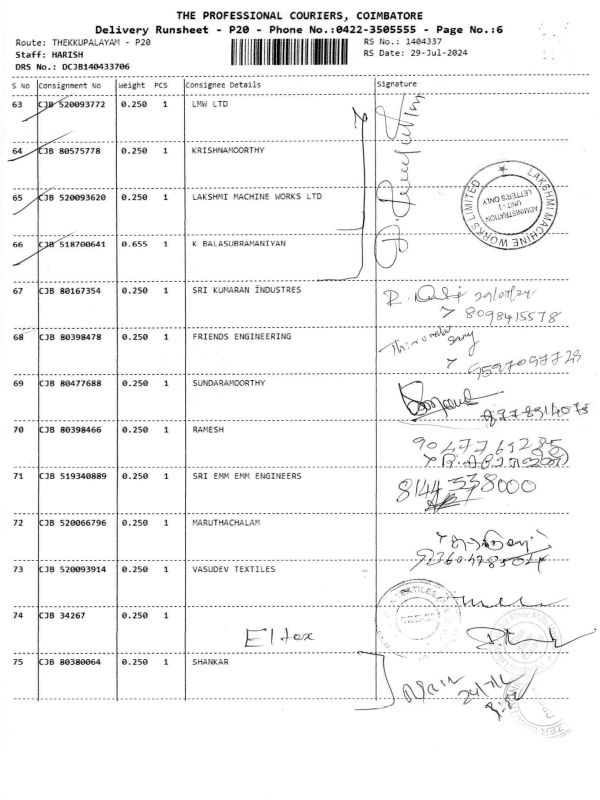 THE PROFESSIONAL COURIERS, COIMBATORE
Delivery Runsheet - P20 - Phone No.:0422-3505555 - Page No.:6
Route: THEKKUPALAYAM - P20
RS No.: 1404337
Staff: HARISH
RS Date: 29-Jul-2024
DRS No.: DCJB140433706
S No Consignment No Weight PCS Consignee Details Signature
63 CJB 520093772 0.250 1 LMW LTD
64 CJB 80575778 0.250 1 KRISHNAMOORTHY
65 CJB 520093620 0.250 1 LAKSHMI MACHINE WORKS LTD
LAKSHMI MACHINE WORKS LIMITED
ADMINISTRATION
UNIT - I
LETTERS ONLY
66 CJB 518700641 0.655 1 K BALASUBRAMANIYAN
67 CJB 80167354 0.250 1 SRI KUMARAN INDUSTRES
8098415578
68 CJB 80398478 0.250 1 FRIENDS ENGINEERING
69 CJB 80477688 0.250 1 SUNDARAMOORTHY
70 CJB 80398466 0.250 1 RAMESH
71 CJB 519340889 0.250 1 SRI EMM EMM ENGINEERS
8144338000
72 CJB 520066796 0.250 1 MARUTHACHALAM
73 CJB 520093914 0.250 1 VASUDEV TEXTILES
74 CJB 34267 0.250 1 Eltex
75 CJB 80380064 0.250 1 SHANKAR